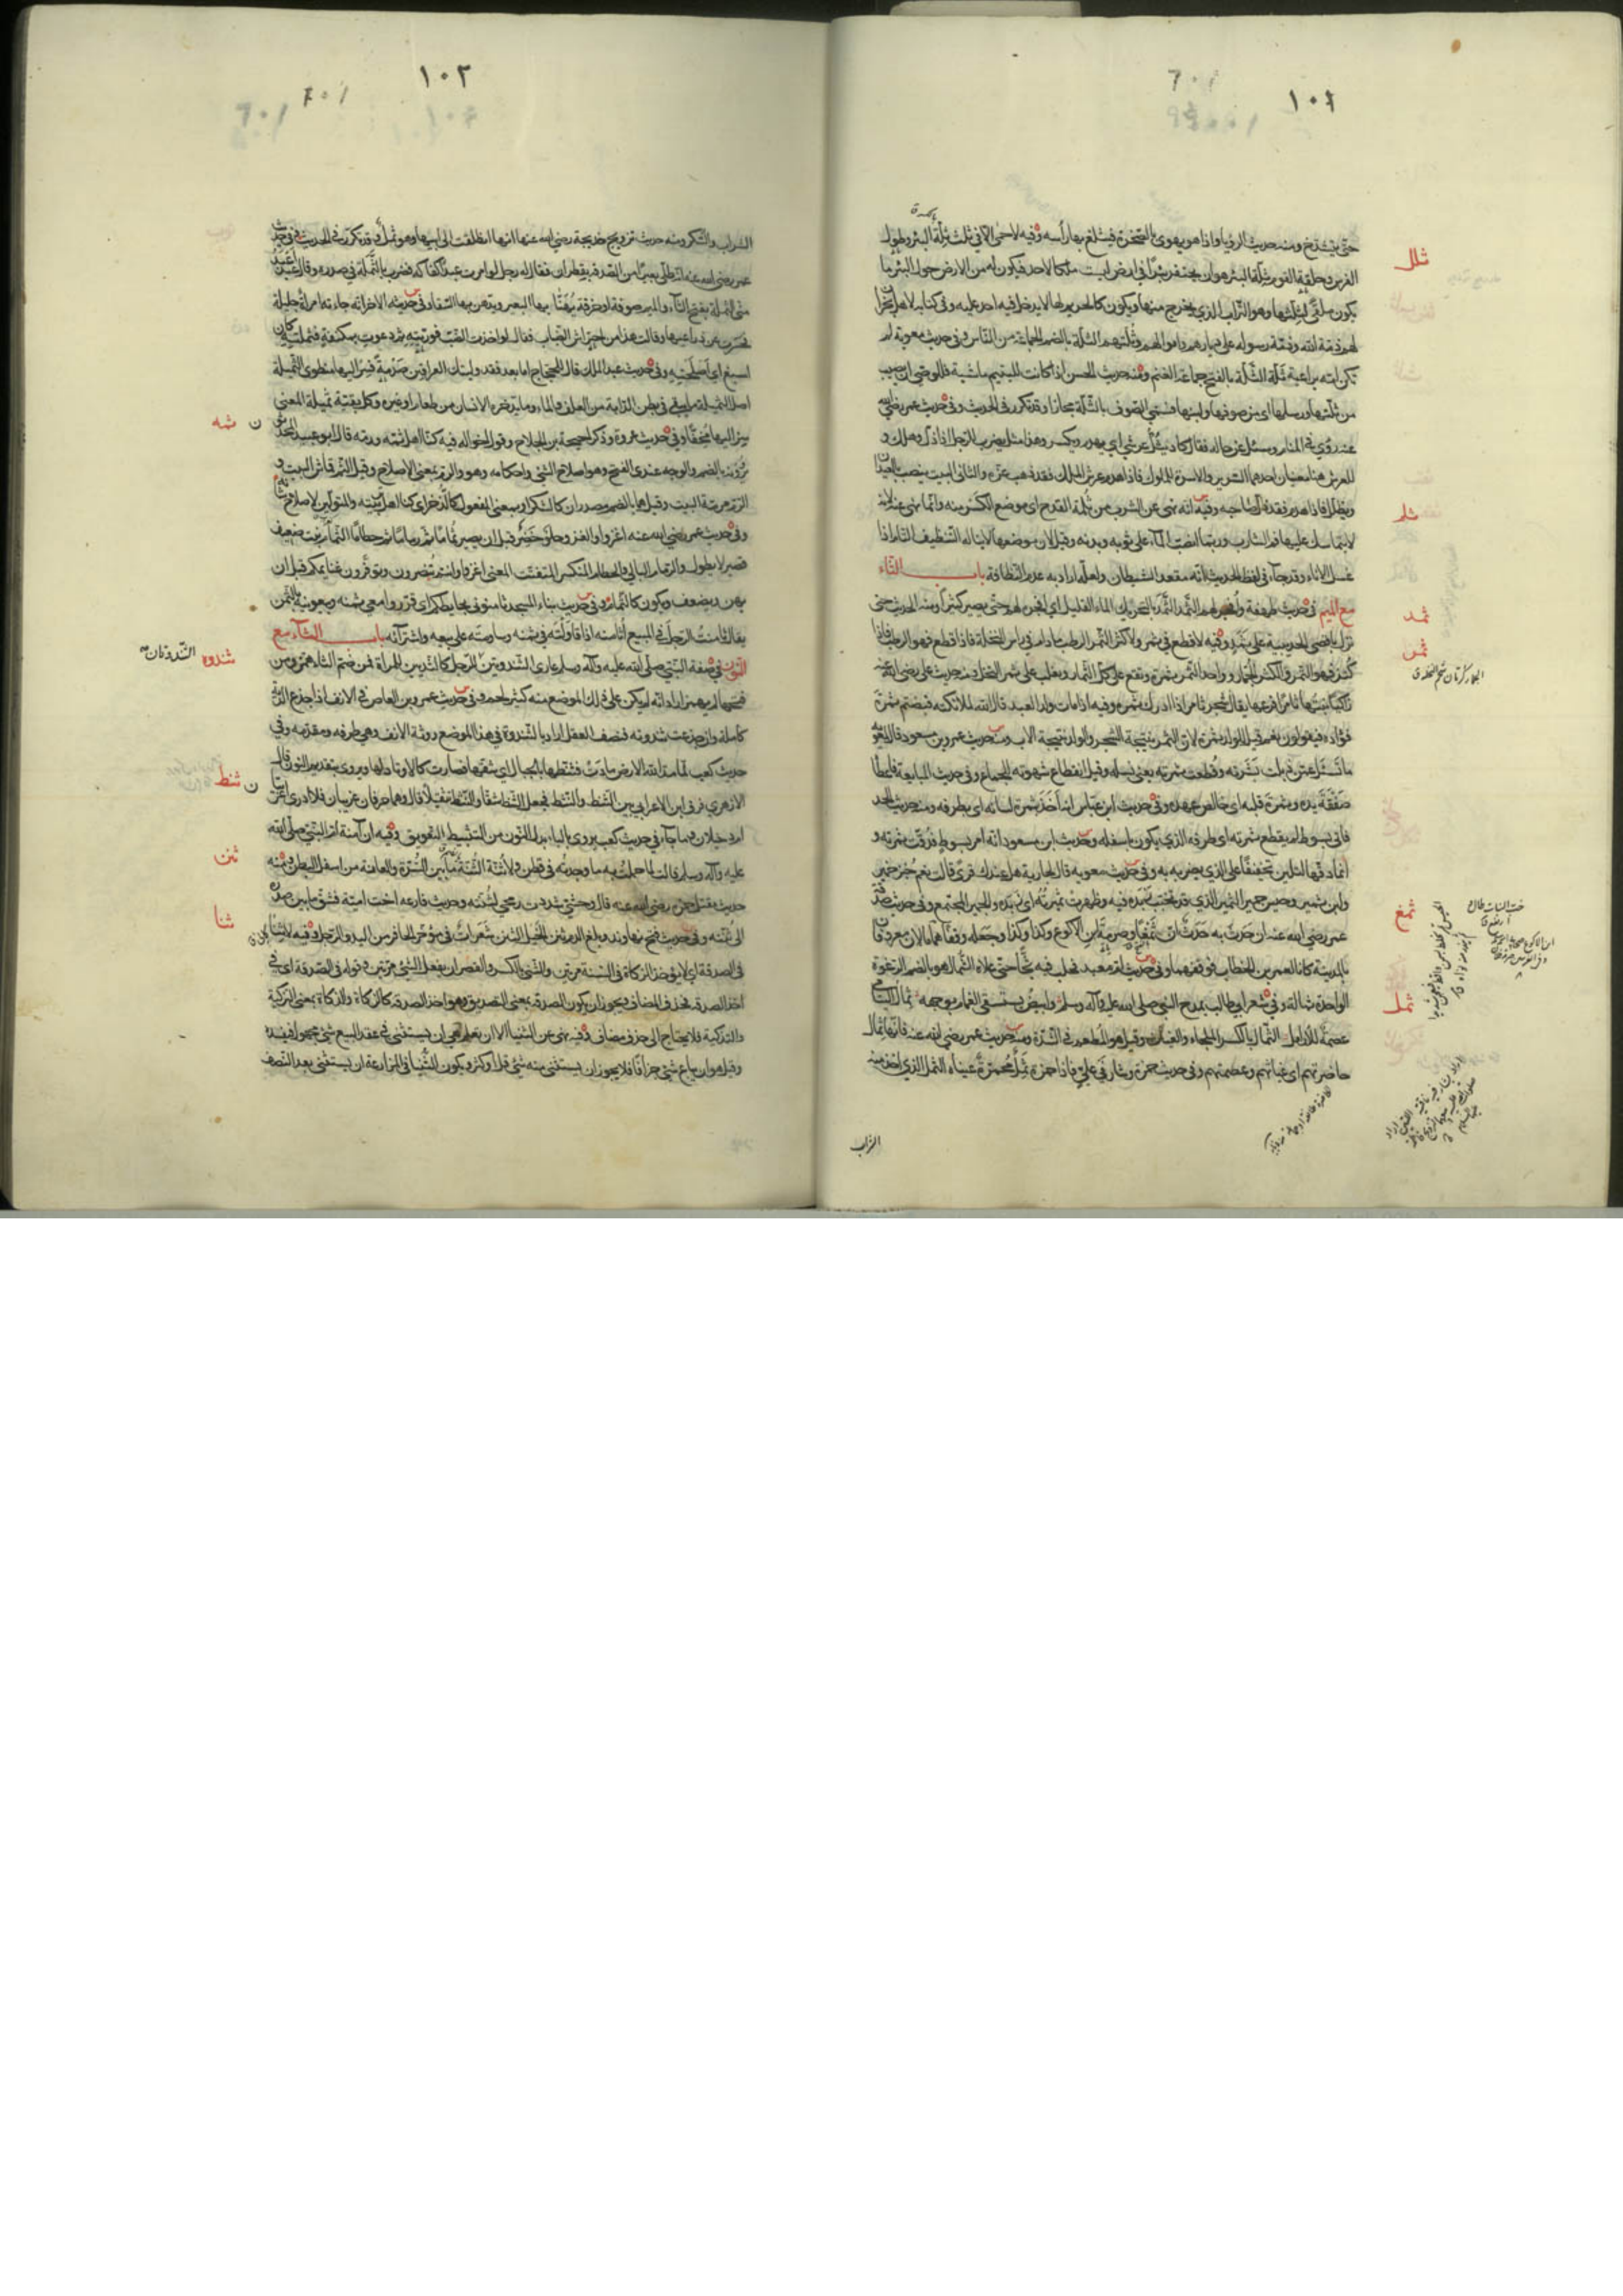 ١٠٤
حتى ينشدخ ومنه حديث الرؤيا واذا هو يهوى بالصخرة فيثلغ بها رأسه وفيه لاحمى الا في ثلث ثلة البئر وطول
الفرس وحلقة القوم ثلة البئر هو ان يحتفر بئرا في ارض ليست ملكا لاحد فيكون له من الارض حول البئر ما
يكون ملقى لثلتها وهو التراب الذي يخرج منها ويكون كالحريم لها لا يدخل فيه احد عليه وفي كتابه لاهل نجران
لهم ذمة الله وذمة رسوله على ديارهم واموالهم وثلتهم الثلة بالضم الجماعة من الناس وفي حديث معوية لم
تكن امه براعية ثلة الثلة بالفتح جماعة الغنم ومنه حديث الحسن اذا كانت لليتيم ماشية فللوصي ان يصيب
من ثلتها ورسلها اى من صوفها ولبنها فسمى الصوف بالثلة مجازا وقد تكرر في الحديث وفي حديث عمر رضي الله
عنه رؤي في المنام وسئل عن حاله فقال كاد يثل عرشي اى يهدم ويكسر وهذا مثل يضرب للرجل اذا ذل وهلك و
للعرش هنا معنيان احدهما السرير والاسرة للملوك فاذا هدم عرش الملك فقد ذهب عزه والثاني البيت ينصب بالعيدان
ويظلل فاذا هدم فقد ذل صاحبه وفيه انه نهى عن الشرب من ثلمة القدح اى موضع الكسر منه وانما نهى عنه لانه
لا يتماسك عليها فم الشارب وربما انصب الماء على ثوبه وبدنه وقيل لان موضعها لا يناله التنظيف التام اذا
غسل الاناء وقد جاء في لفظ الحديث انه مقعد الشيطان ولعله اراد به عدم النظافة باب الثاء
مع الميم في حديث طهفة وافجر لهم الثمد الثمد بالتحريك الماء القليل اى افجره لهم حتى يصير كثيرا ومنه الحديث حتى
نزل باقصى الحديبية على ثمد وفيه لا قطع في ثمر ولا كثر الثمر الرطب ما دام في راس النخلة فاذا قطع فهو الرطب فاذا
كنز فهو التمر والكثر الجمار وواحد الثمر ثمرة ويقع على كل الثمار ويغلب على ثمر النخل ومنه حديث علي رضي الله عنه
زاكيا نبتها ثامرا فرعها يقال شجر ثامر اذا ادرك ثمره وفيه اذا مات ولد العبد قال الله لملائكته قبضتم ثمرة
فؤاده فيقولون نعم قيل للولد ثمرة لان الثمر ينتجه الشجر والولد نتيجة الاب وحديث عمرو بن مسعود قال لمعوية
ما تسئل عمن ذبلت بشرته وقطعت ثمرته يعني نسله وقيل انقطاع شهوته للجماع وفي حديث المبايعة فاعطاه
صفقة يده وثمرة قلبه اى خالص عهده وفي حديث ابن عباس انه اخذ بثمرة لسانه اى بطرفه ومنه حديث الحد
فاتي بسوط لم يقطع ثمرته اى طرفه الذي يكون باسفله وحديث ابن مسعود انه امر بسوط فدقت ثمرته و
انما دقها لتلين تخفيفا على الذي يضربه به وفي حديث معوية قال لجارية هل عندك قرى قالت نعم خبز خمير
ولبن ثمير وحيس جمير الثمير الذي قد تحبب زبده فيه وظهرت ثميرته اى زبده والجمير المجتمع وفي حديث صدقة
عمر رضي الله عنه ان حدث به حدث ان ثمغا وصرمة ابن الاكوع وكذا وكذا وجعله وقفا هما مالان معروفان
بالمدينة كانا لعمر بن الخطاب فوقفهما وفي حديث ام معبد فحلب فيه ثجا حتى علاه الثمال هو بالضم الرغوة
الواحدة ثمالة وفي شعر ابي طالب يمدح النبي صلى الله عليه وآله وسلم وابيض يستسقى الغمام بوجهه ثمال اليتامى
عصمة للارامل الثمال بالكسر الملجاء والغياث وقيل هو المطعم في الشدة ومنه حديث عمر رضي الله عنه فانها ثمال
حاضرتهم اى غياثهم وعصمتهم وفي حديث حمزة وشارفي علي فاذا حمزة ثمل محمرة عيناه الثمل الذي اخذ منه
الشراب
ثلل
ثلم
ثمد
ثمر
ثمغ
ثمل
١٠٢
الشراب والسكر ومنه حديث تزويج خديجة رضي الله عنها انها انطلقت الى ابيها وهو ثمل وقد تكرر في الحديث وفي حديث
عمر رضي الله عنه انه طلى بعيرا من الصدقة بقطران فقال له رجل لو امرت عبدا كفاكه فضرب بالثملة في صدره وقال عبد اعبد
مني الثملة بفتح الثاء والميم صوفة او خرقة يهنأ بها البعير ويدهن بها السقاء وفي حديثه الاخر انه جاءته امرأة جليلة
فحسرت عن ذراعيها وقالت هذا من احتراش الضباب فقال لو اخذت الضب فوريته ثم دعوت بمكتفة فثملته كان
اشبع اى اصلحته وفي حديث عبد الملك قال للحجاج اما بعد فقد وليتك العراقين صدمة فسر اليها منطوى الثميلة
اصل الثميلة ما يبقى في بطن الدابة من العلف والماء وما يدخره الانسان من طعام او غيره وكل بقية ثميلة المعنى
سر اليها مخفا وفي حديث عروة وذكر احيحة بن الجلاح وقول اخواله فيه كنا اهل ثمه ورمه قال ابو عبيد المحدثون
يروونه بالضم والوجه عندى الفتح وهو اصلاح الشئ واحكامه وهو والرم بمعنى الاصلاح وقيل الثم قماش البيت و
الرم مرمة البيت وقيل هما بالضم مصدران كالشكر او بمعنى المفعول كالذخر اى كنا اهل تربيته والمتولين لاصلاح شانه
وفي حديث عمر رضي الله عنه اغزوا والغزو حلو خضر قبل ان يصير ثماما ثم رماما ثم حطاما الثمام نبت ضعيف
قصير لا يطول والرمام البالي والحطام المتكسر المتفتت المعنى اغزوا وانتم تنصرون وتوفرون غنايمكم قبل ان
يهن ويضعف ويكون كالثمام وفي حديث بناء المسجد ثامنوني بحايطكم اى قرروا معي ثمنه وبيعونيه بالثمن
يقال ثامنت الرجل في المبيع اثامنه اذا قاولته في ثمنه وساومته على بيعه واشترائه باب الثاء مع
النون في صفة النبي صلى الله عليه وآله وسلم عارى الثندوتين الثندوتان للرجل كالثديين للمراة فمن ضم الثاء همز ومن
فتحها لم يهمز اراد انه لم يكن على ذلك الموضع منه كثير لحم وفي حديث عمرو بن العاص في الانف اذا جدع الدية
كاملة وان جدعت ثندوته فنصف العقل اراد بالثندوة في هذا الموضع روثة الانف وهي طرفه ومقدمه وفي
حديث كعب لما مد الله الارض مادت فثنطها بالجبال اى شقها فصارت كالاوتاد لها ويروى بتقديم النون قال
الازهري فرق ابن الاعرابي بين الثنط والنثط فجعل الثنط شقا والنثط تثقيلا قال وهما حرفان غريبان فلا ادرى اعربيان
ام دخيلان وما جاء في حديث كعب يروى بالباء بدل النون من التثبيط التعويق وفيه ان آمنة ام النبي صلى الله
عليه وآله وسلم قالت لما حملت به ما وجدته في قطن ولا ثنة الثنة ما بين السرة والعانة من اسفل البطن ومنه
حديث مقتل حمزة رضي الله عنه قال وحشي سددت رمحي لثنته وحديث فارعة اخت امية فشق ما بين صدره
الى ثنته وفي حديث فتح نهاوند وبلغ الدم ثنن الخيل الثنن شعرات في مؤخر الحافر من اليد والرجل وفيه لا ثنى
في الصدقة اى لا يؤخذ الزكاة في السنة مرتين والثنى بالكسر والقصر ان يفعل الشئ مرتين وقوله في الصدقة اى في
اخذ الصدقة فحذف المضاف ويجوز ان يكون الصدقة بمعنى التصديق وهو اخذ الصدقة كالزكاة والذكاة بمعنى التزكية
والتذكية فلا يحتاج الى حذف مضاف وفيه نهى عن الثنيا الا ان يعلم هي ان يستثنى في عقد البيع شئ مجهول فيفسده
وقيل هو ان يباع شئ جزافا فلا يجوز ان يستثنى منه شئ قل او كثر ويكون الثنيا في المزارعة ان يستثنى بعد النصف
ثمه
ثندوه
الثندوتان
ثنط
ثنن
ثنا